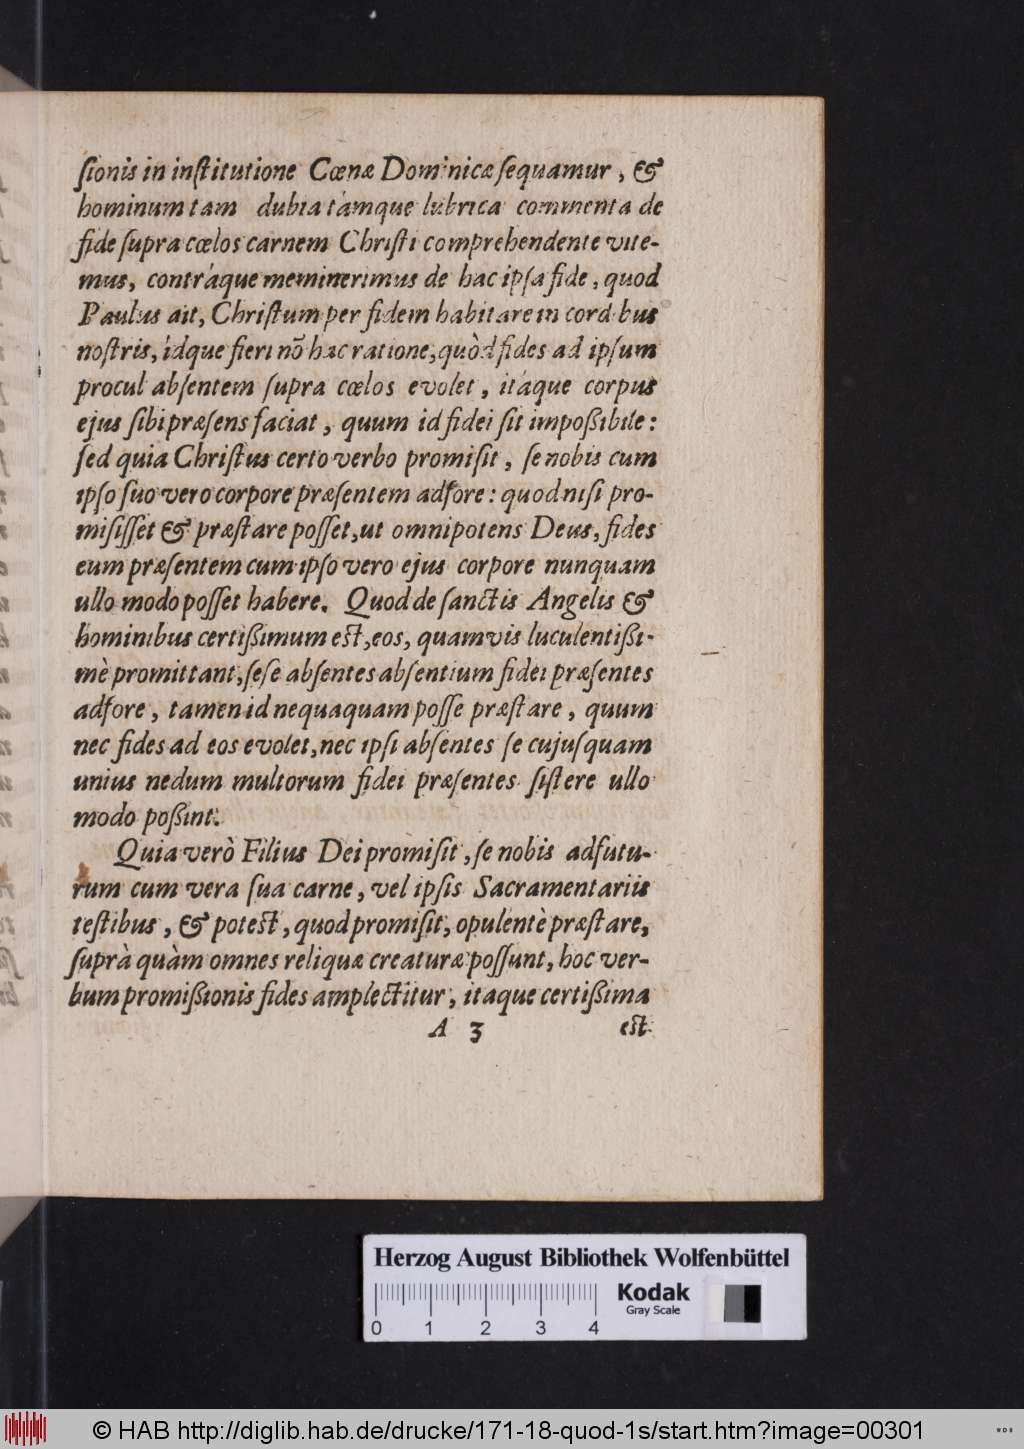 ſionis in inſtitutione Cœnæ Dominicæ ſequamur, &
hominum tam dubia támque lubrica commenta de
fide ſupra cœlos carnem Chriſti comprehendente vite-
mus, contráque meminerimus de hac ipſa fide, quod
Paulus ait, Chriſtum per fidem habitare in cord bus
noſtris, idque fieri nõ hac ratione, quòd fides ad ipſum
procul abſentem ſupra cœlos evolet, itáque corpus
ejus ſibi præſens faciat, quum id fidei ſit impoßibile:
ſed quia Chriſtus certo verbo promiſit, ſe nobis cum
ipſo ſuo vero corpore præſentem adfore: quod niſi pro-
miſiſſet & præſtare poſſet, ut omnipotens Deus, fides
eum præſentem cum ipſo vero ejus corpore nunquam
ullo modo poſſet habere. Quod de ſanctis Angelis &
hominibus certißimum eſt, eos, quamvis luculentißi-
mè promittant, ſeſe abſentes abſentium fidei præſentes
adfore, tamen id nequaquam poſſe præſtare, quum
nec fides ad eos evolet, nec ipſi abſentes ſe cujuſquam
unius nedum multorum fidei præſentes ſiſtere ullo
modo poßint.
Quia verò Filius Dei promiſit, ſe nobis adfutu-
rum cum vera ſua carne, vel ipſis Sacramentariis
teſtibus, & poteſt, quod promiſit, opulentè præſtare,
ſuprà quàm omnes reliquæ creaturæ poſſunt, hoc ver-
bum promißionis fides amplectitur, itaque certißima
A 3 eſt
Herzog August Bibliothek Wolfenbüttel
Kodak
Gray Scale
0 1 2 3 4
© HAB http://diglib.hab.de/drucke/171-18-quod-1s/start.htm?image=00301